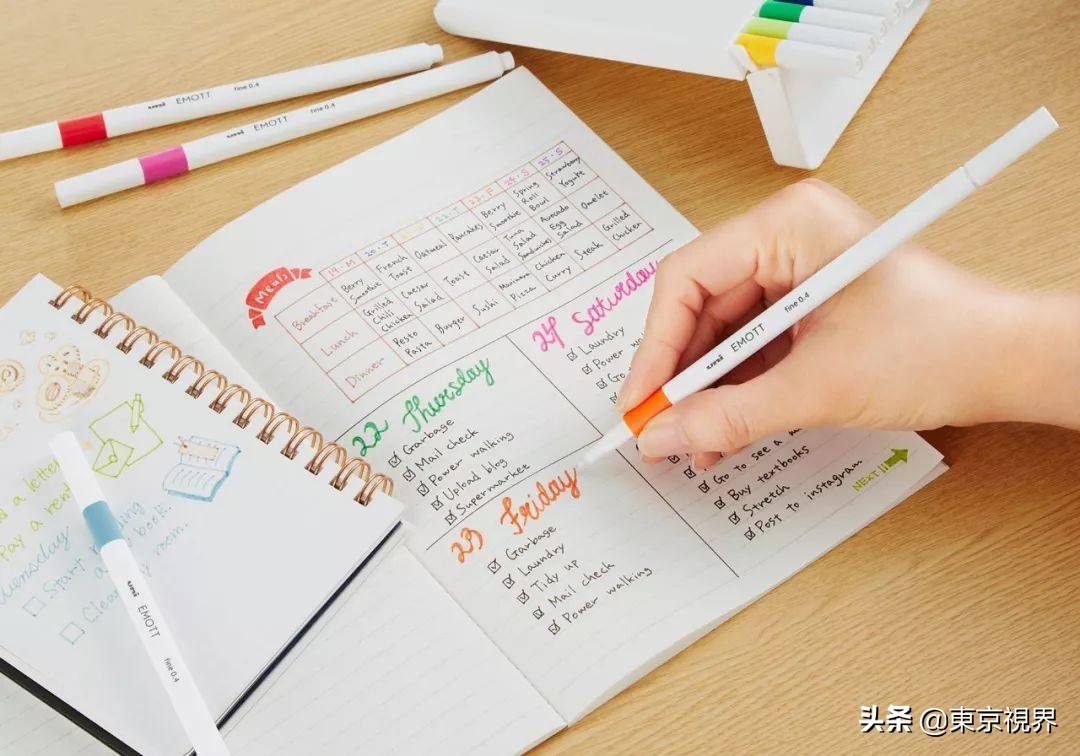 uni EMOTT fine 0.4
uni EMOTT fine 0.4
Meals
19・M 20・T 22・T 23・F 24・S 25・S
Breakfast Berry Smoothie French Toast Oatmeal Pancakes Berry Smoothie Spring Roll Bowl Strawberry Yogurt
Lunch Grilled Chili Chicken Caesar Salad Toast Caesar Salad Tuna Salad Sandwiches Avocado Egg Salad Omelet
Dinner Pesto Pasta Burger Sushi Marinara Pizza Chicken Curry Steak Grilled Chicken
24 Saturday
Laundry
Power
Go
22 Thursday
Garbage
Mail check
Power walking
Upload blog
Supermarket
23 Friday
Garbage
Laundry
Tidy up
Mail check
Power walking
Go to see a
Buy textbooks
Stretch
Post to instagram
NEXT!!
uni EMOTT fine 0.4
a letter
Pay a
Start
book.
room.
uni EMOTT fine 0.4
头条 @東京視界